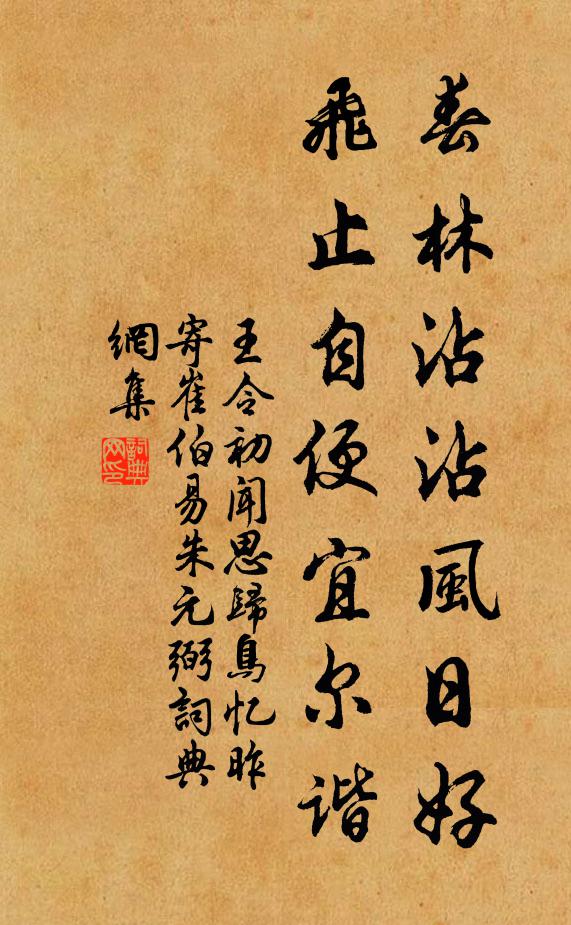 春林沾沾風日好
飛止自便宜尔谐
王令初聞思歸鳥忆昨
寄崔伯易朱元弼詞典
網集
詞典
网印